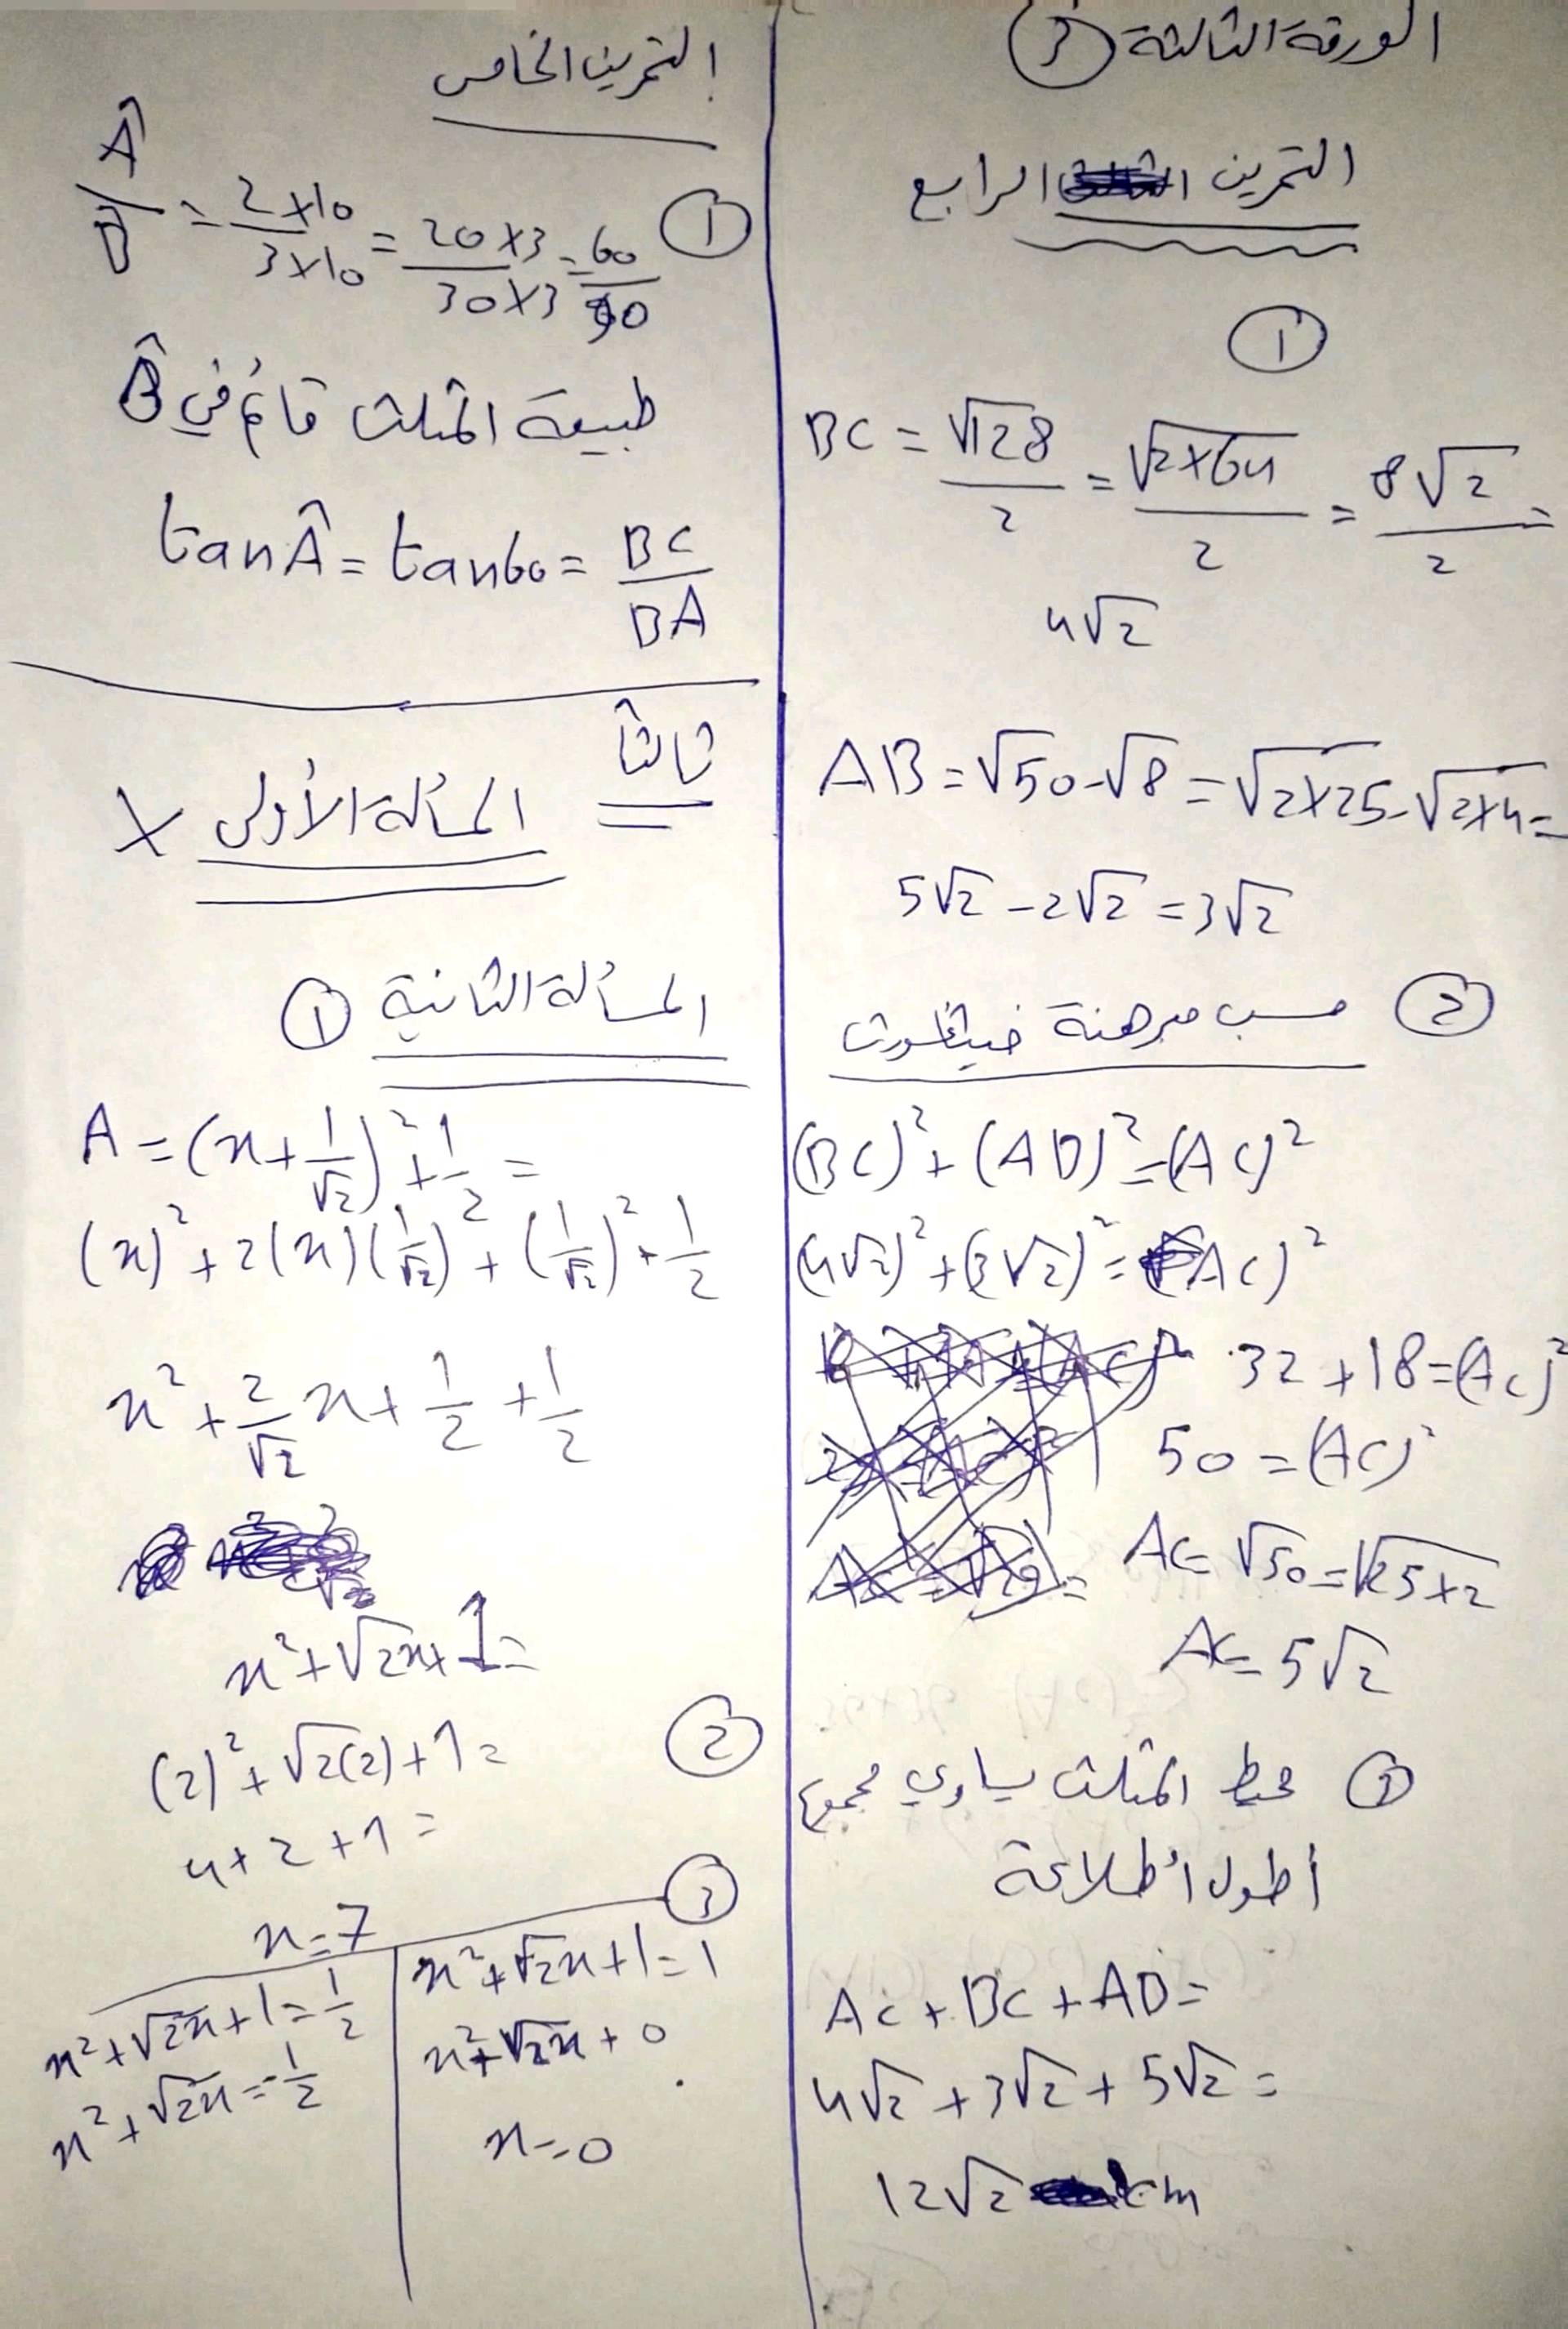 الورقة الثالثة (3)
التمرين الرابع
①
BC = √128/2 = √2×64/2 = 8√2/2 =
4√2
AB = √50 - √8 = √2×25 - √2×4 =
5√2 - 2√2 = 3√2
② حسب مبرهنة فيثاغورث
(BC)² + (AB)² = (AC)²
(4√2)² + (3√2)² = (AC)²
32 + 18 = (AC)²
50 = (AC)²
AC = √50 = √25×2
AC = 5√2
③ محيط المثلث يساوي مجموع
أطول أظلاعة
AC + BC + AB =
4√2 + 3√2 + 5√2 =
12√2 cm
التمرين الخامس
① Â/B̂ = 2×10/3×10 = 20×3/30×3 = 60/90
طبيعة المثلث قائم في B̂
tan Â = tan 60 = BC/BA
ثالثاً
المسألة الأولى X
المسألة الثانية ①
A = (x + 1/√2)² + 1/2 =
(x)² + 2(x)(1/√2)² + (1/√2)² + 1/2
x² + 2/√2 x + 1/2 + 1/2
x² + √2x + 1 =
② (2)² + √2(2) + 1 =
4 + 2 + 1 =
x = 7
③
x² + √2x + 1 = 1
x² + √2x + 0
x = 0
x² + √2x + 1 = 1/2
x² + √2x = -1/2